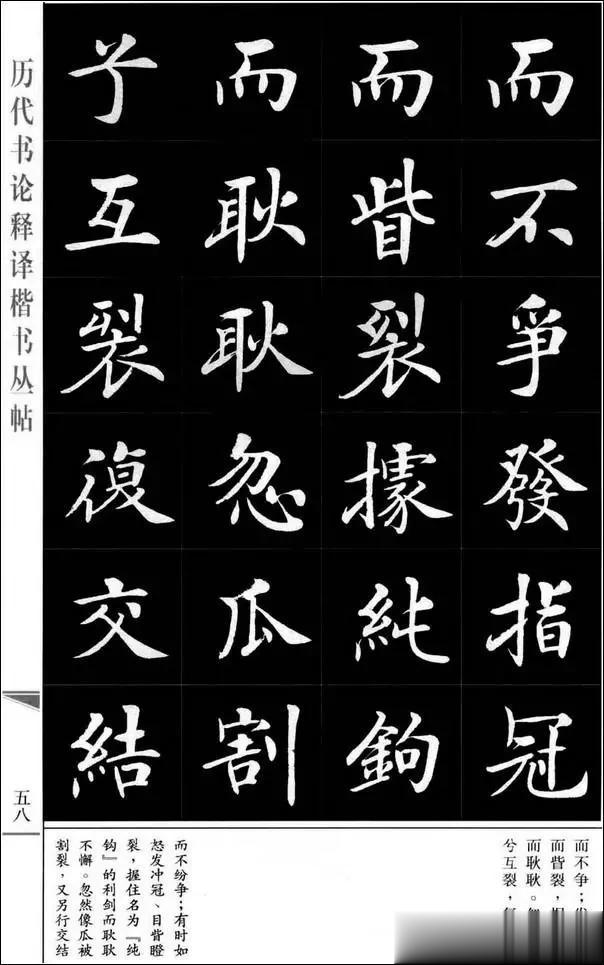 而不爭發指冠
而眥裂據純鉤
而耿耿忽瓜割
兮互裂復交結
历代书论释译楷书丛帖
五八
而不争；
而眥裂，
而耿耿。
兮互裂，
而不纷争；有时如
怒发冲冠、目眥瞪
裂，握住名为『纯
钩』的利剑而耿耿
不懈。忽然像瓜被
割裂，又另行交结